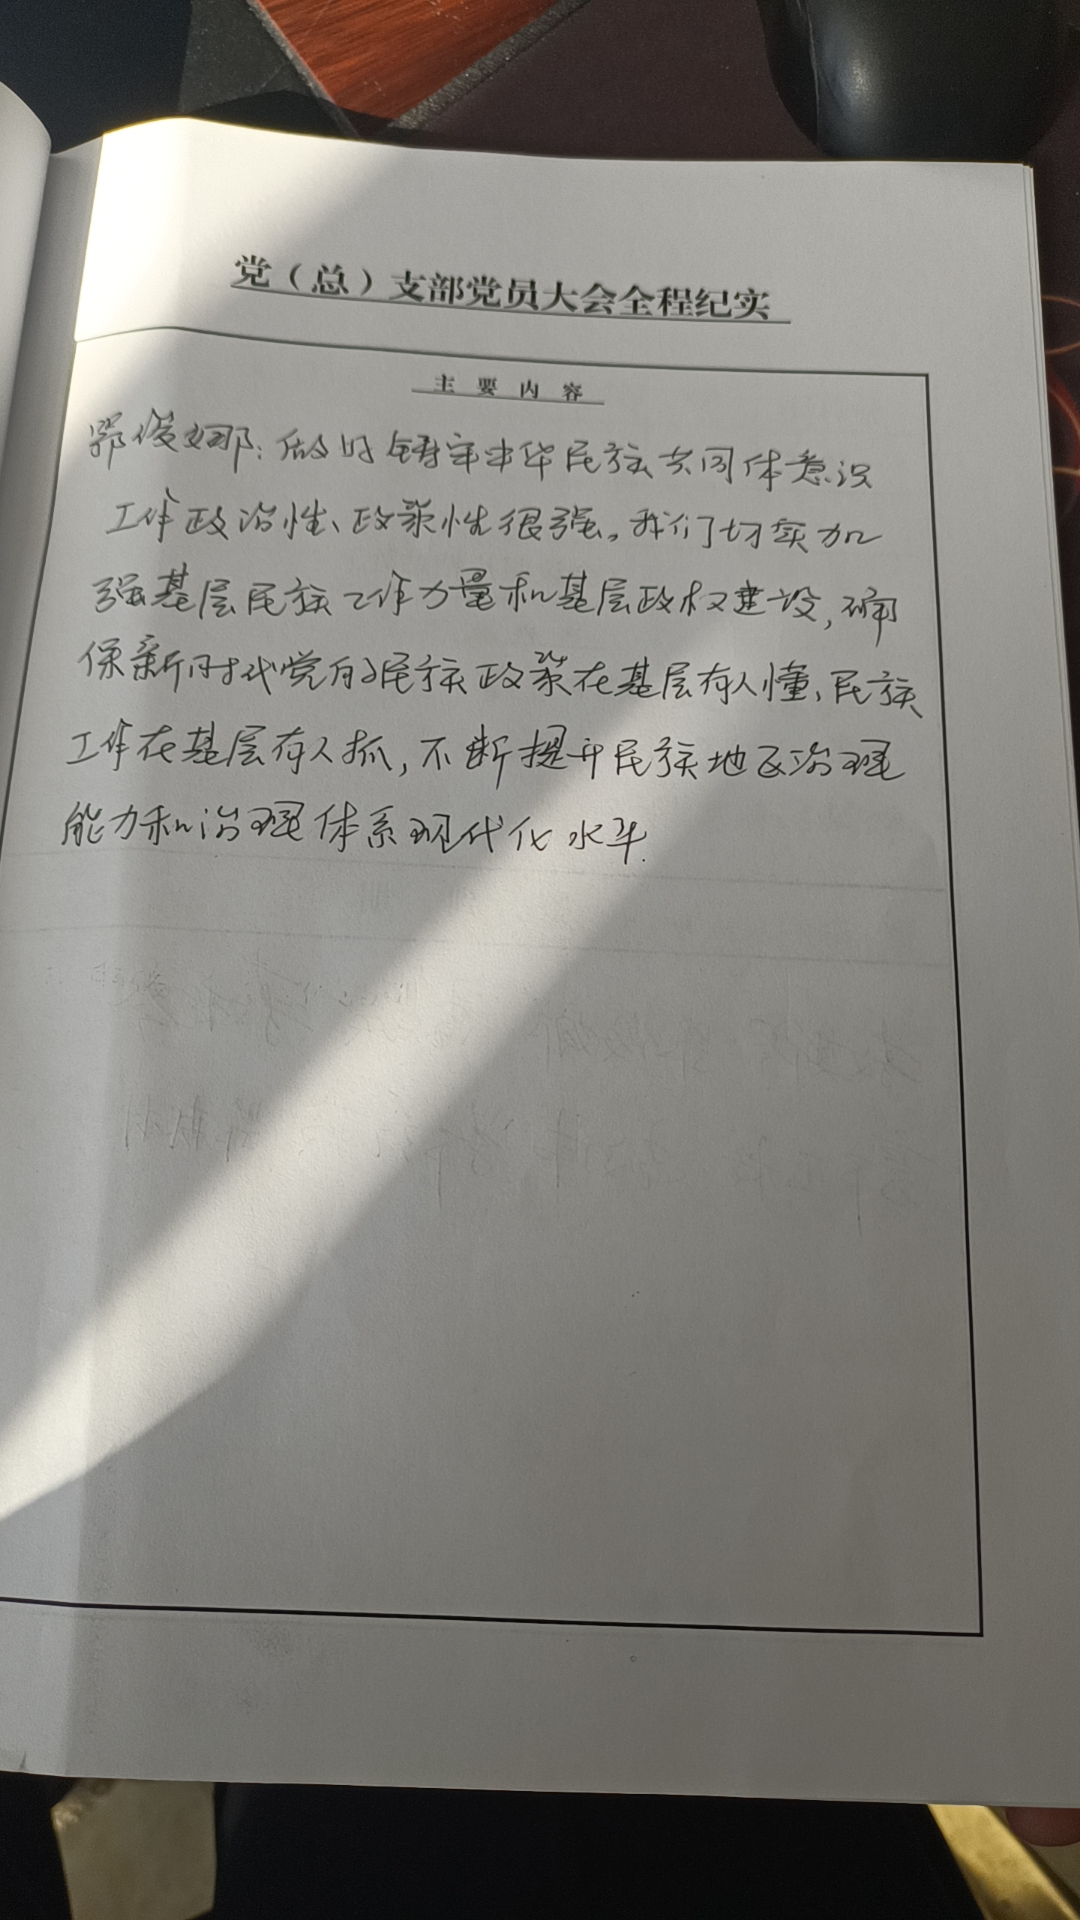 党（总）支部党员大会全程纪实
主要内容
郭俊娜：做好铸牢中华民族共同体意识
工作政治性、政策性很强。我们切实加
强基层民族工作力量和基层政权建设，确
保新时代党的民族政策在基层有人懂、民族
工作在基层有人抓，不断提升民族地区治理
能力和治理体系现代化水平.